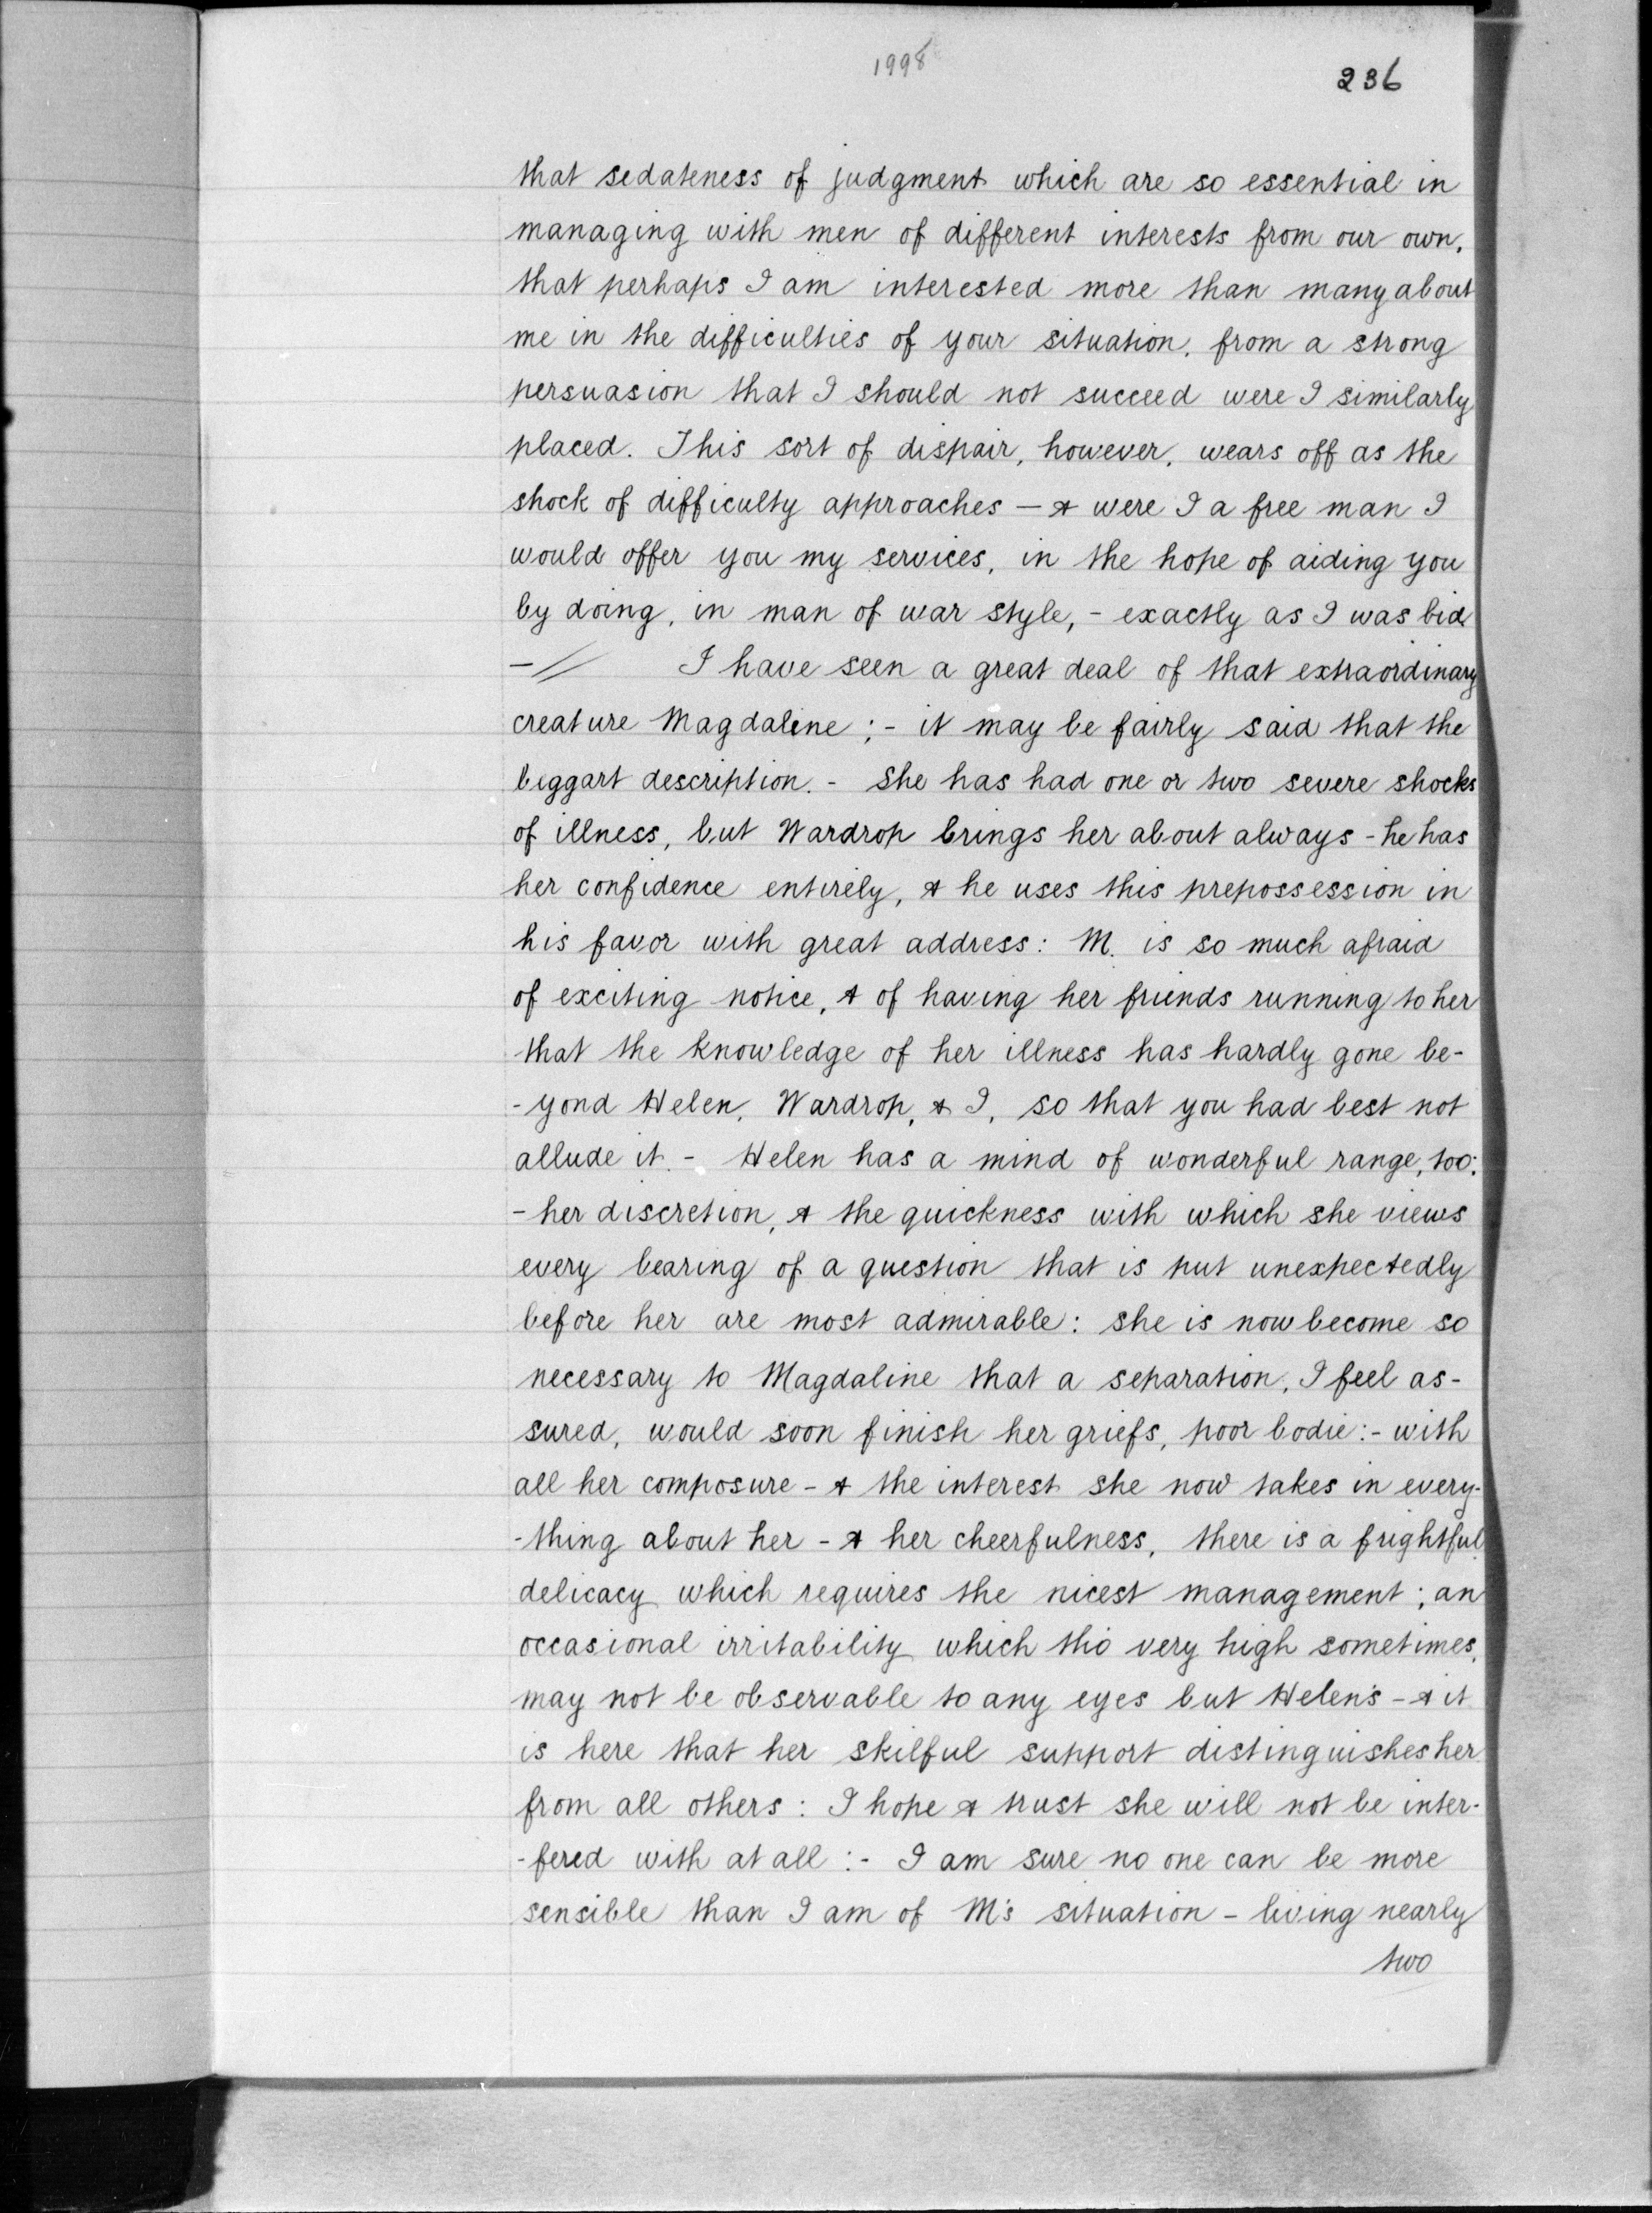 1998
236
that sedateness of judgment which are so essential in
managing with men of different interests from our own,
that perhaps I am interested more than many about
me in the difficulties of your situation, from a strong
persuasion that I should not succeed were I similarly
placed. This sort of dispair, however, wears off as the
shock of difficulty approaches — & were I a free man I
would offer you my services, in the hope of aiding you
by doing, in man of war style, - exactly as I was bid
-// I have seen a great deal of that extraordinary
creature Magdaline ; - it may be fairly said that the
beggart description. - She has had one or two severe shocks
of illness, but Wardrop brings her about always - he has
her confidence entirely, & he uses this prepossession in
his favor with great address : M. is so much afraid
of exciting notice, & of having her friends running to her
that the knowledge of her illness has hardly gone be-
-yond Helen, Wardrop, & I, so that you had best not
allude it. - Helen has a mind of wonderful range, too:
- her discretion, & the quickness with which she views
every bearing of a question that is put unexpectedly
before her are most admirable : she is now become so
necessary to Magdaline that a separation, I feel as-
sured, would soon finish her griefs, poor bodie :- with
all her composure - & the interest she now takes in every-
-thing about her - & her cheerfulness, there is a frightful
delicacy which requires the nicest management ; an
occasional irritability which tho' very high sometimes,
may not be observable to any eyes but Helen's - & it
is here that her skilful support distinguishes her
from all others : I hope & trust she will not be inter-
-fered with at all :- I am sure no one can be more
sensible than I am of M's situation - living nearly
two